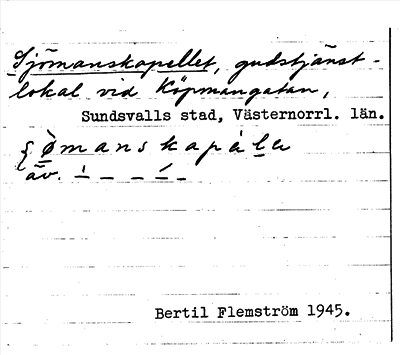 Sjömanskapellet, gudstjänst-
lokal vid Köpmangatan,
Sundsvalls stad, Västernorrl. län.
äv.
Bertil Flemström 1945.